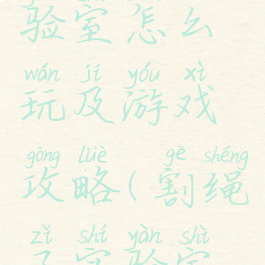 验室怎么
wán jí yóu xì
玩及游戏
gōng lüè gē shéng
攻略(割绳
zǐ shí yàn shì
子实验室